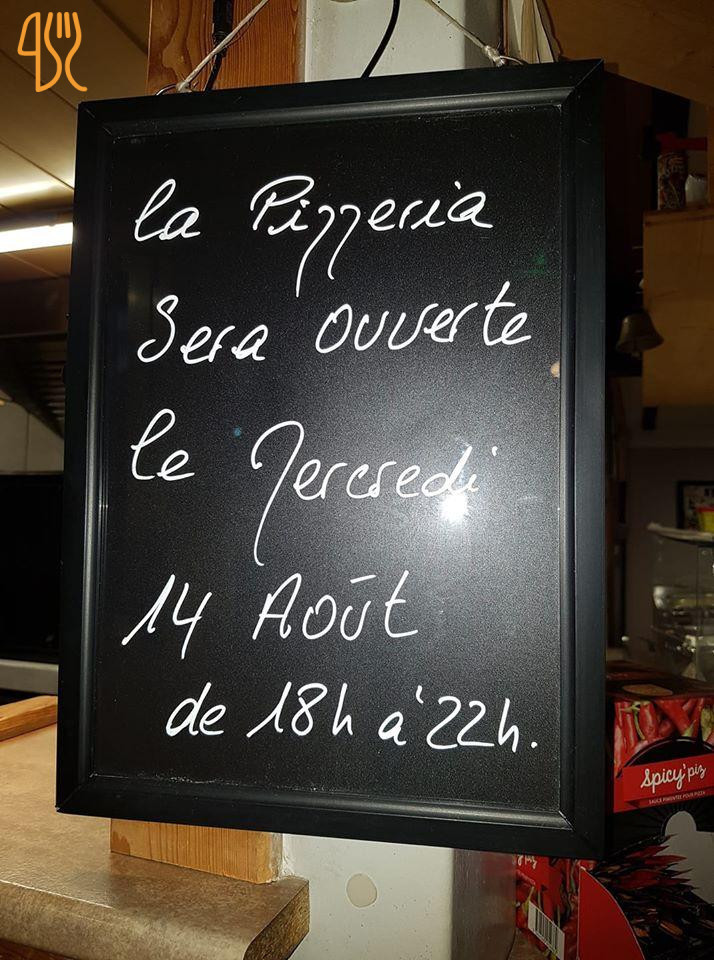 la Pizzeria
Sera ouverte
le Mercredi
14 Août
de 18h à 22h.
Spicy' piz
SAUCE PIMENTÉE POUR PIZZA